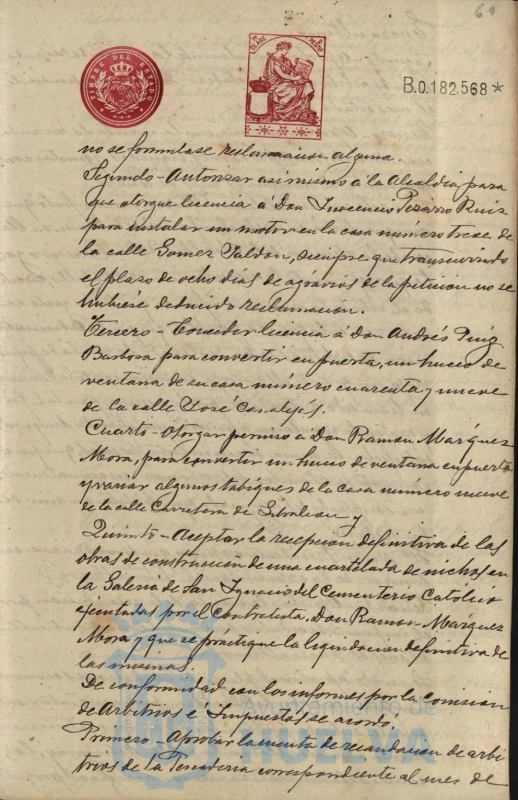 61
TIMBRE DEL ESTADO
8ª CLASE
PESO
B.0.182.568*
no se formulase reclamacion alguna.
Segundo-Autorizar asi mismo á la Alcaldia, para
que otorgue licencia á Don Inocencio Pizarro Ruiz
para instalar un motor en la casa número trece de
la calle Gomez Jaldon, siempre que transcurrido
el plazo de ocho dias de agravios de la peticion no se
hubiese deducido reclamación.
Tercero-Conceder licencia á Don Andrés Ruiz
Barbosa para convertir en puerta, un hueco de
ventana de su casa número cuarenta y nueve
de la calle José Canalejas.
Cuarto-Otorgar permiso á Don Ramon Marquez
Mora, para convertir un hueco de ventana en puerta
y variar algunos tabiques de la casa número nueve
de la calle Carretera de Gibraleon y
Quinto-Aceptar la recepcion definitiva de las
obras de construcción de una cuartelada de nichos en
la Galeria de San Ignacio del Cementerio Catolico
ejecutadas por el Contratista, Don Ramon Marquez
Mora y que se práctique la liquidacion definitiva de
las mismas.
De conformidad con los informes por la comision
de Arbitrios e Impuestos se acordó.
Primero.-Aprobar la cuenta de recaudacion de arbi-
trios de la Pescaderia correspondiente al mes de
Ayuntamiento de
HUELVA